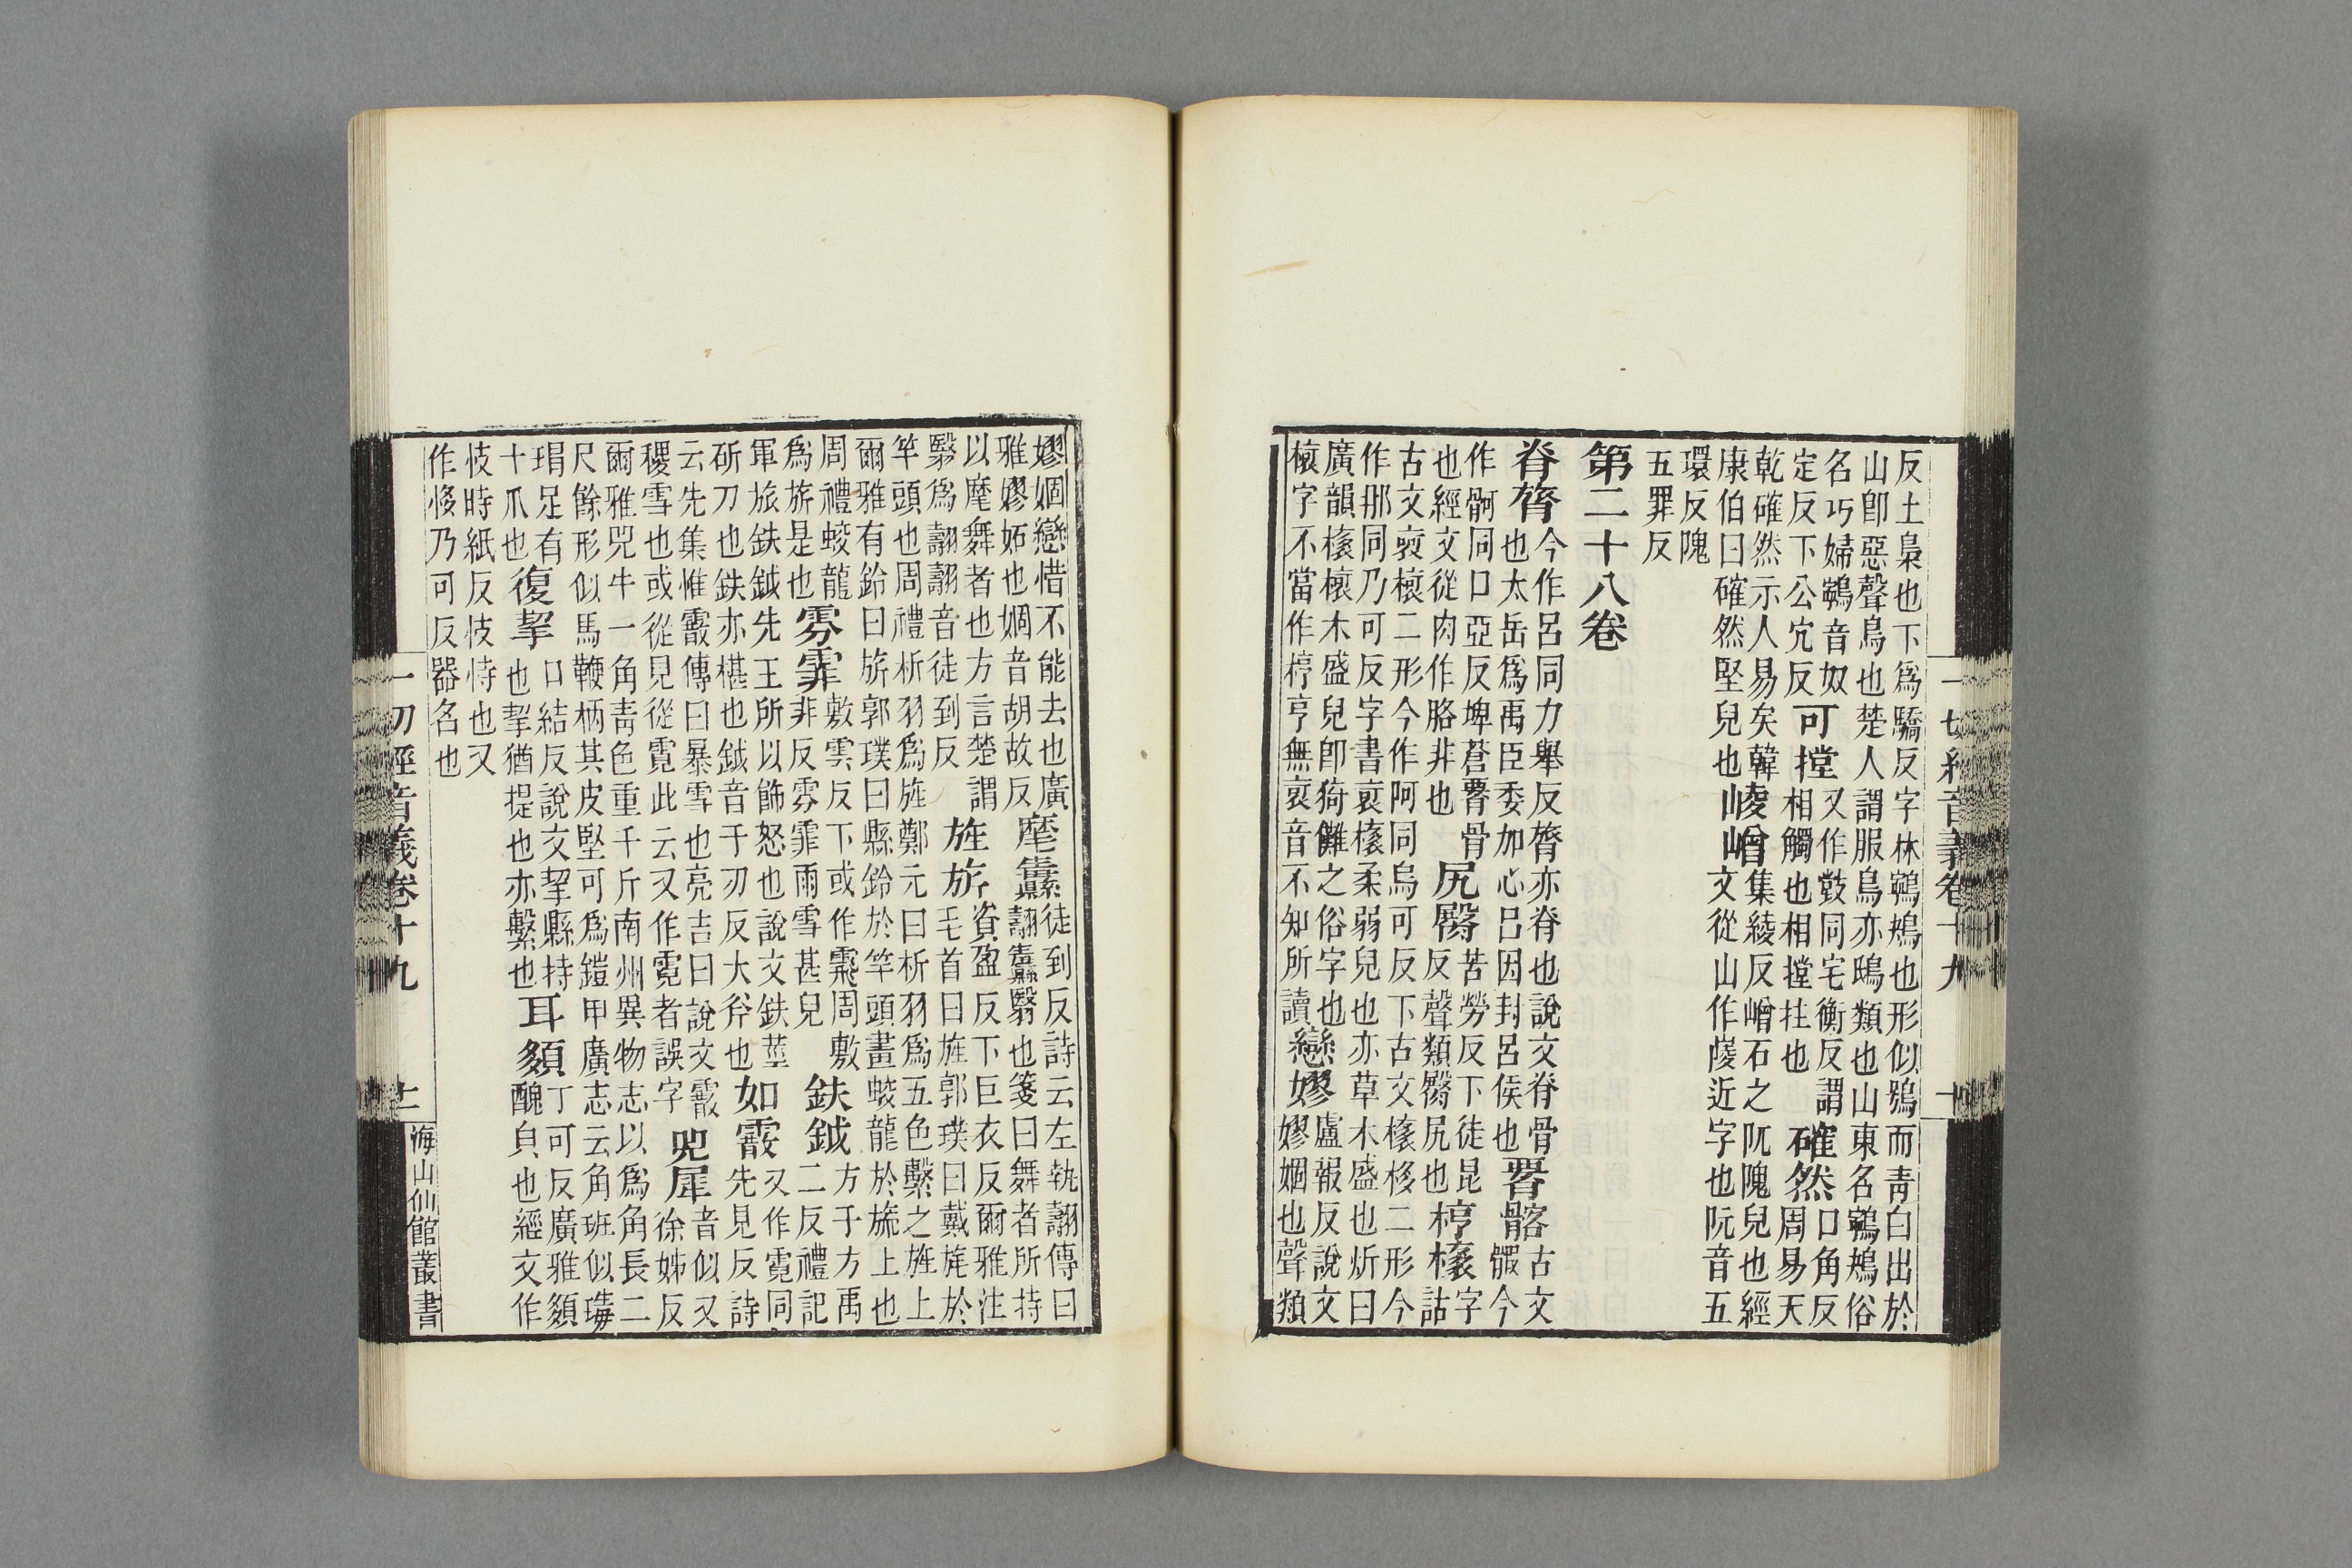 反土梟也下爲驕反字林鸋鴂也形似鴞而青白出於山卽惡聲鳥也楚人謂服鳥亦鴟類也山東名鸋鴂俗
名巧婦鸋音奴定反下公穴反可摚又作敱同宅衡反謂相觸也相摚拄也確然口角反周易天
乾確然示人易矣韓康伯曰確然堅皃也崚嶒集綾反嶒石之阮隗皃也經文從山作崚近字也阮音五
環反隗五罪反
第二十八卷
脊膂今作呂同力舉反膂亦脊也說文脊骨也太岳爲禹臣委如心呂因封呂侯也䯊髂古文髁今
作䯊同口亞反埤蒼䯊骨也經文從肉作胳非也尻臋苦勞反下徒昆反聲類臋尻也椁榱字詁
古文裒榱二形今作阿同烏可反下古文榱栘二形今作那同乃可反字書裒榱柔弱皃也亦草木盛也炘曰
廣韻榱榱木盛皃卽猗儺之俗字也榱字不當作椁亨無裒音不知所讀戀嫪盧報反說文嫪婟也聲類
嫪婟戀惜不能去也廣雅嫪妬也婟音胡故反麾纛徒到反詩云左執翿傳曰翿纛翳也箋曰舞者所持
以麾舞者也方言楚謂翳爲翿翿音徒到反旌旂資盈反下巨衣反爾雅注旄首曰旌郭璞曰戴旄於
竿頭也周禮析羽爲旌鄭元曰析羽爲五色繫之旌上爾雅有鈴曰旂郭璞曰縣鈴於竿頭畫蛟龍於旒上也
周禮蛟龍爲旂是也雰霏敷雲反下或作䬠周敷非反雰霏雨雪甚皃鈇鉞方于方禹二反禮記
軍旅鈇鉞先王所以飾怒也說文鈇莝斫刀也鈇亦椹也鉞音于刃反大斧也如霰又作霓同先見反詩
云先集惟霰傳曰暴雪也亮吉曰說文霰稷雪也或從見從霓此云又作霓者誤字兕犀音似又徐姊反
爾雅兕牛一角青色重千斤南州異物志以爲角長二尺餘形似馬鞭柄其皮堅可爲鎧甲廣志云角班似瑇
瑁足有十爪也復挈口結反說文挈縣持也挈猶提也亦繫也耳䫂丁可反廣雅䫂醜皃也經文作
忮時紙反忮恃也又作恀乃可反器名也
一切經音義卷十九
十
一切經音義卷十九
十一
海山仙館叢書